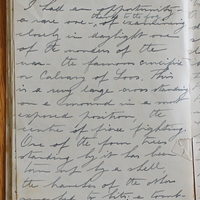 I had an opportunity -
thanks to the fog
a rare one -, of examining
closely in daylight one
of the wonders of the
war - the famous crucifix
or Calvary of Loos. This
is a very large cross standing
on a mound in a most
exposed position, the
centre of fierce fighting.
One of the four trees
standing by it has been
torn up by a shell
the branches of the